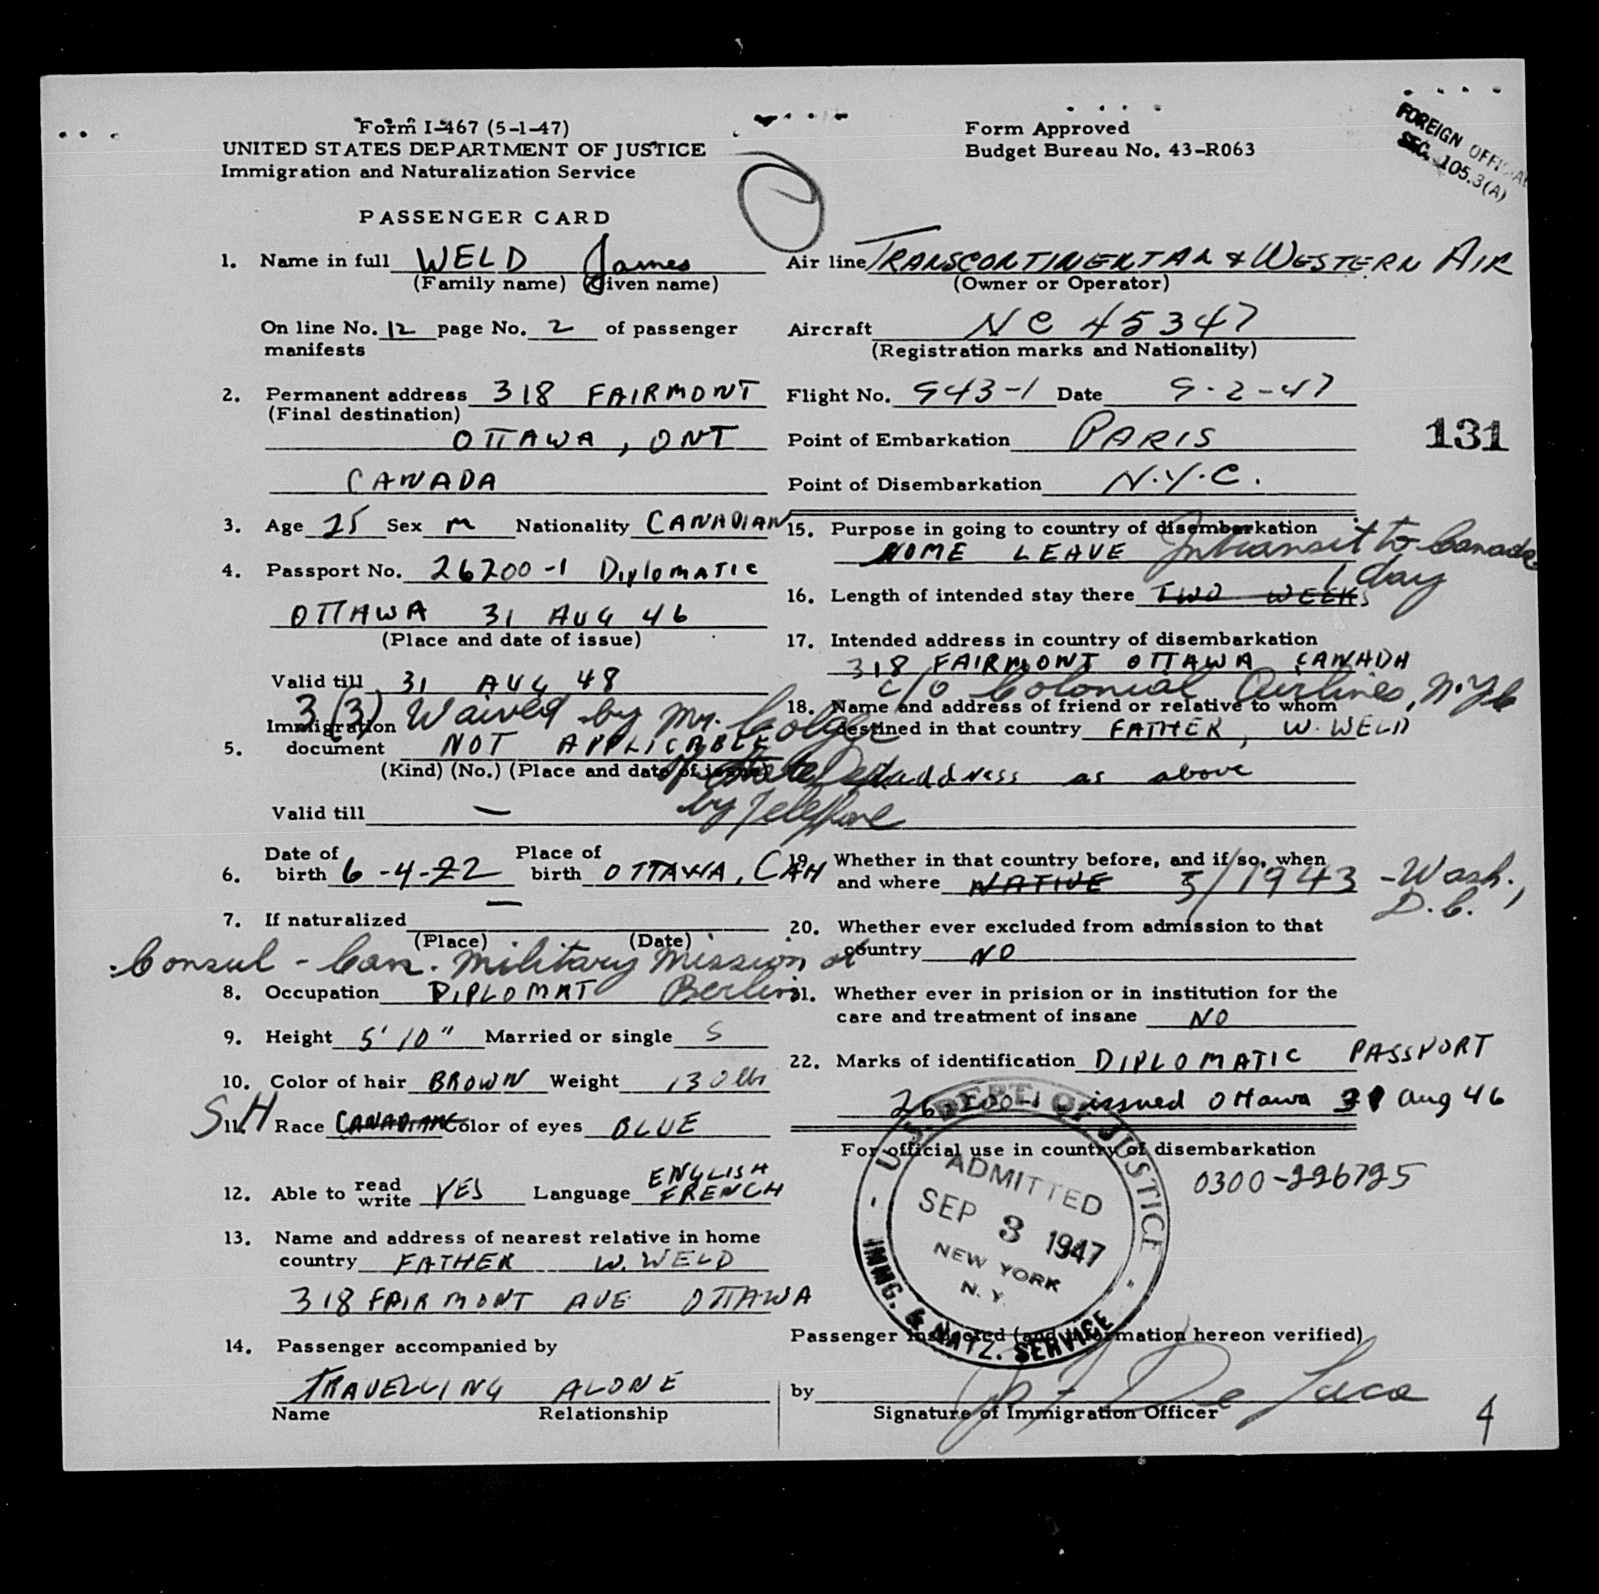 Form I-467 (5-1-47)
UNITED STATES DEPARTMENT OF JUSTICE
Immigration and Naturalization Service
Form Approved
Budget Bureau No. 43-R063
FOREIGN OFFICIAL
SEC. 105.3(A)
PASSENGER CARD
1. Name in full WELD James
(Family name) (Given name)
On line No. 12 page No. 2 of passenger
manifests
2. Permanent address 318 FAIRMONT
(Final destination)
OTTAWA, ONT
CANADA
3. Age 25 Sex M Nationality CANADIAN
4. Passport No. 26200-1 DIPLOMATIC
OTTAWA 31 AUG 46
(Place and date of issue)
Valid till 31 AUG 48
3(3) Waived by Mr.
Immigration
5. document NOT APPLICABLE
(Kind) (No.) (Place and date of issue)
State Dept
by Telephone
Valid till —
6. Date of birth 6-4-22 Place of birth OTTAWA, CAN
7. If naturalized —
(Place) (Date)
Consul - Can. Military Mission at
Berlin
8. Occupation DIPLOMAT
9. Height 5'10" Married or single S
10. Color of hair BROWN Weight 130 lbs
S.H
11. Race CANADIAN Color of eyes BLUE
12. Able to read write YES Language ENGLISH
FRENCH
13. Name and address of nearest relative in home
country FATHER W. WELD
318 FAIRMONT AVE OTTAWA
14. Passenger accompanied by
TRAVELLING ALONE
Name Relationship
Air line TRANSCONTINENTAL & WESTERN AIR
(Owner or Operator)
Aircraft NC 45347
(Registration marks and Nationality)
Flight No. 943-1 Date 9-2-47
Point of Embarkation PARIS
131
Point of Disembarkation N.Y.C.
15. Purpose in going to country of disembarkation
HOME LEAVE Intransit to Canada
1 day
16. Length of intended stay there TWO WEEKS
17. Intended address in country of disembarkation
318 FAIRMONT OTTAWA CANADA
c/o Colonial Airlines, N.Y.C
18. Name and address of friend or relative to whom
destined in that country FATHER, W. WELD
address as above
19. Whether in that country before, and if so, when
and where NATIVE 5/1943 - Wash.,
D.C.
20. Whether ever excluded from admission to that
country NO
21. Whether ever in prision or in institution for the
care and treatment of insane NO
22. Marks of identification DIPLOMATIC PASSPORT
26200-1 issued Ottawa 31 Aug 46
For official use in country of disembarkation
0300-226725
U.S. DEPT. OF JUSTICE
ADMITTED
SEP 3 1947
NEW YORK
N.Y.
IMMG. & NATZ. SERVICE
Passenger inspected (and information hereon verified)
by De Luca
Signature of Immigration Officer
4